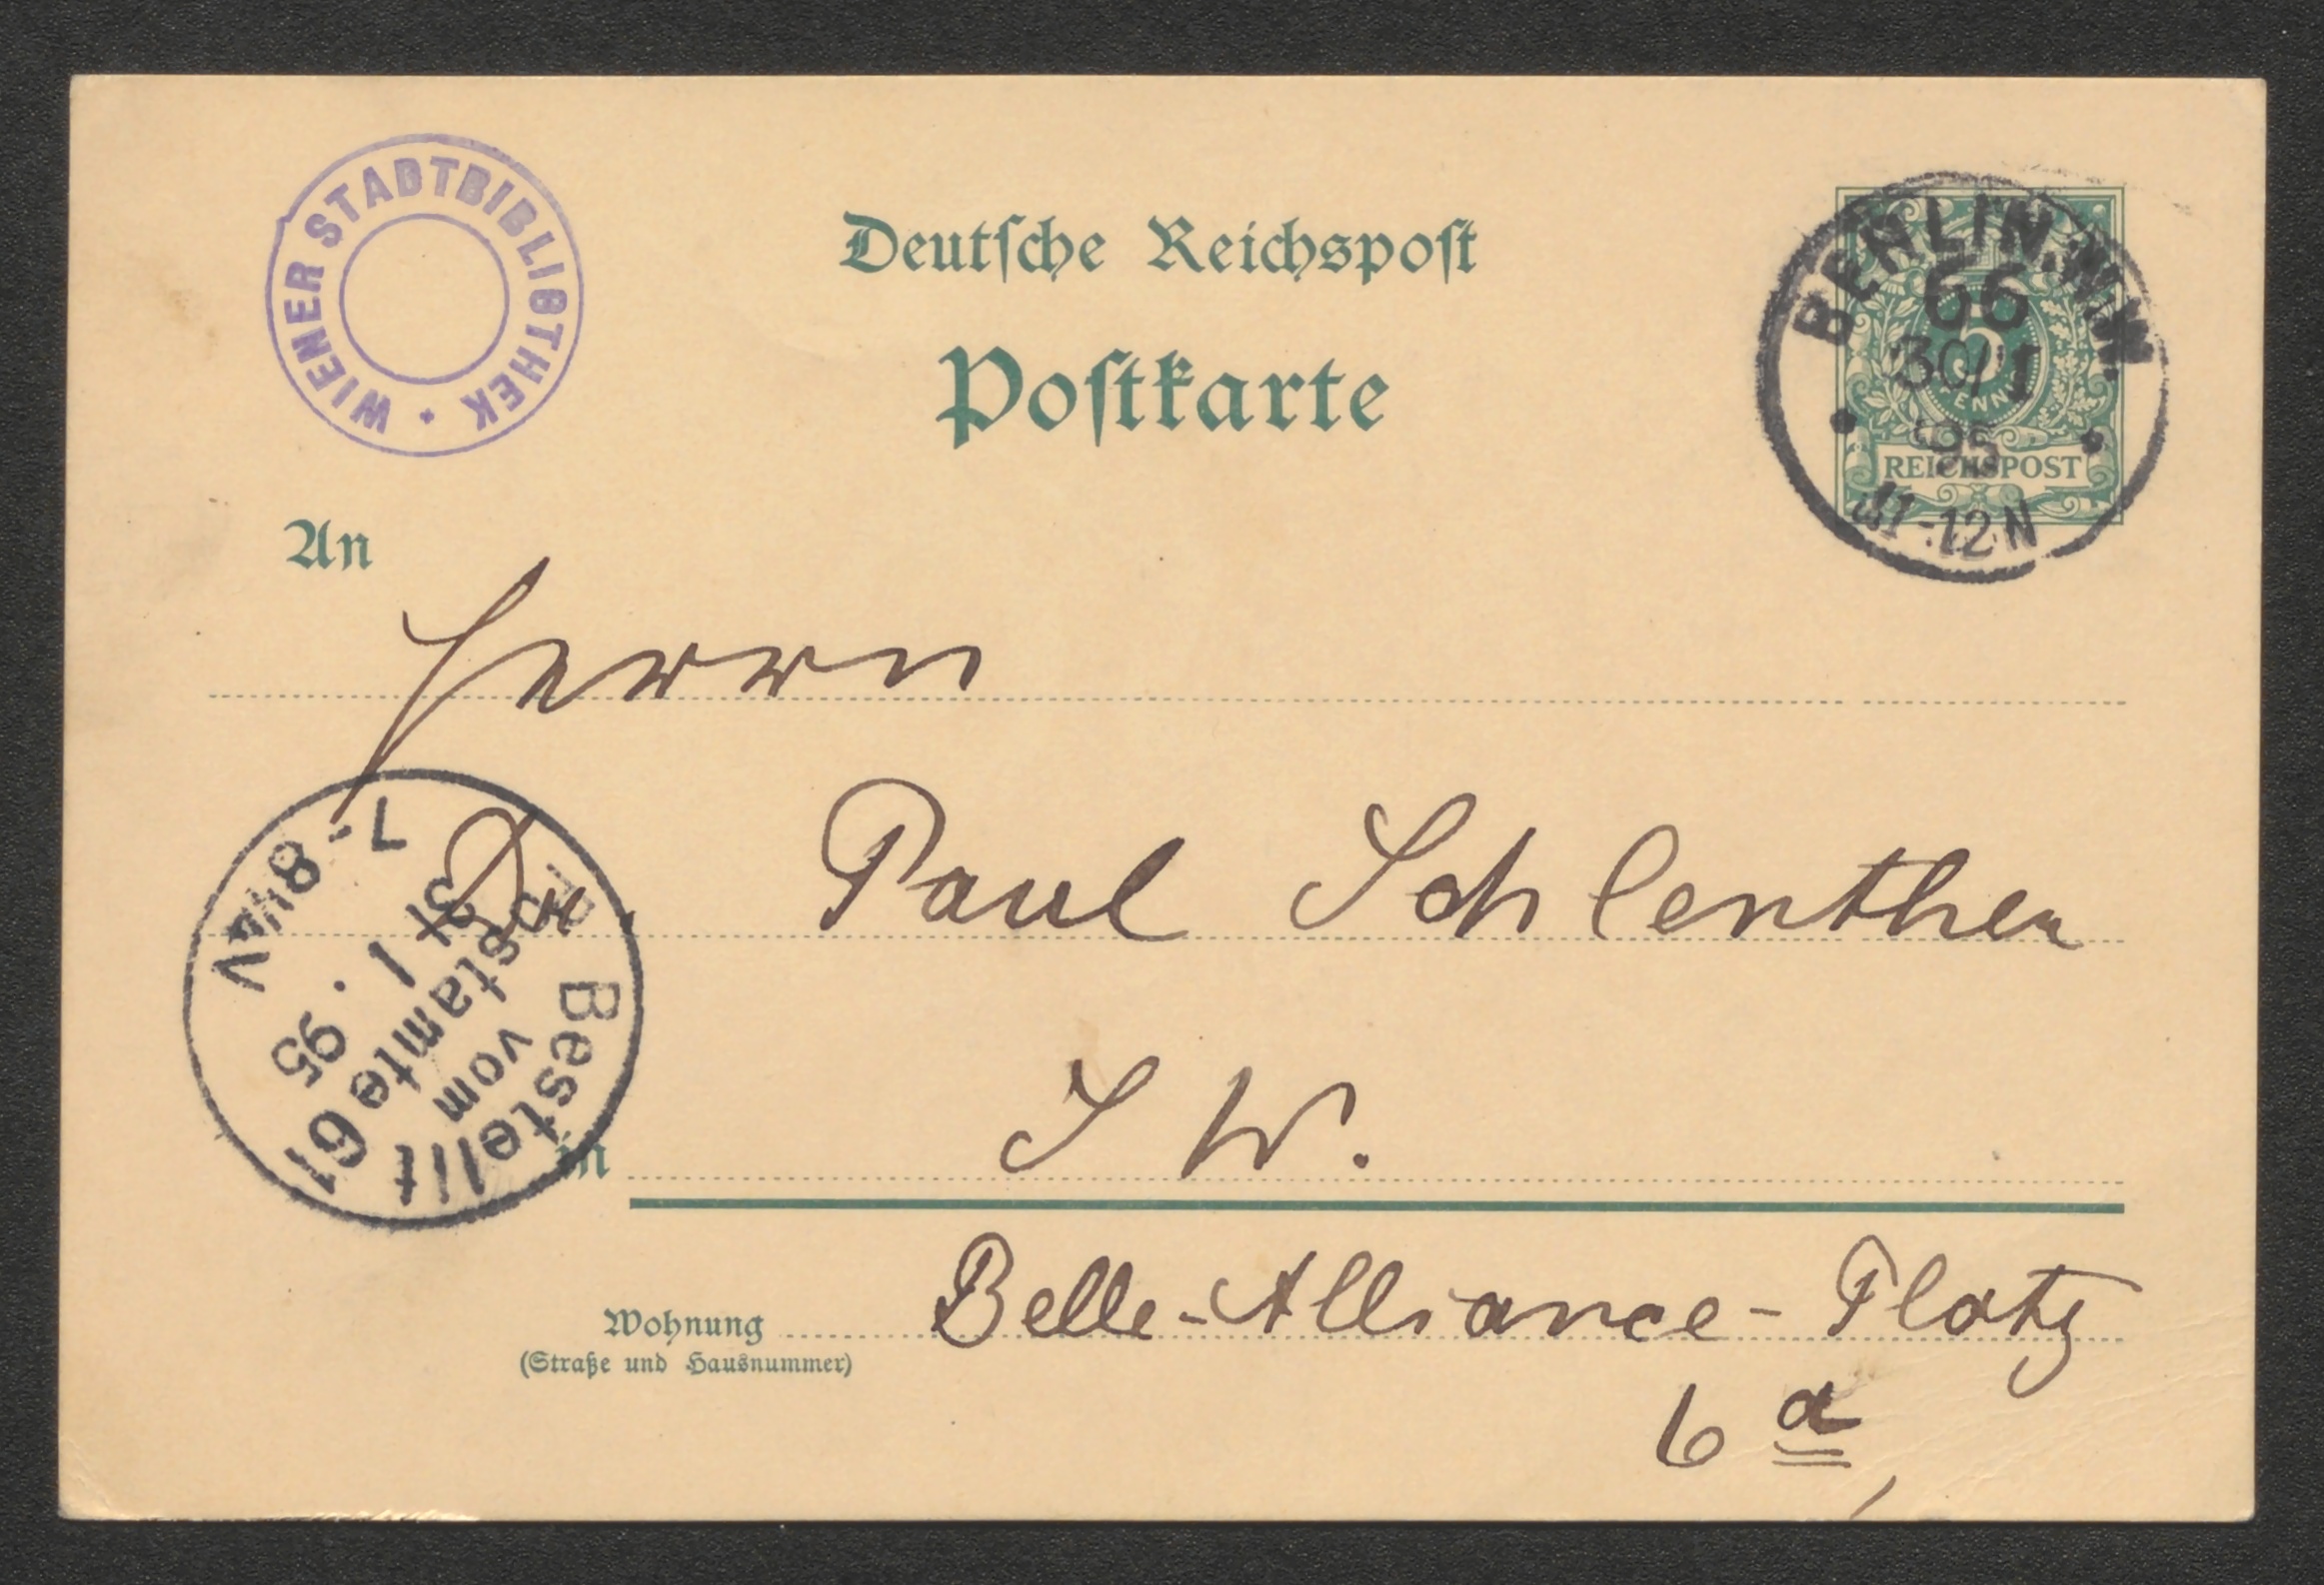 WIENER STADTBIBLIOTHEK
Deutsche Reichspost
Postkarte
BERLIN.N.W.
66
30/1
95
11-12N
5
PFENNIG
REICHSPOST
An
Herrn
Dr Paul Schlenther
in S W.
Bestellt
vom
Postamte 61
31/1.95
7-8 1/4 V
Wohnung Belle-Alliance-Platz
(Straße und Hausnummer)
6 a